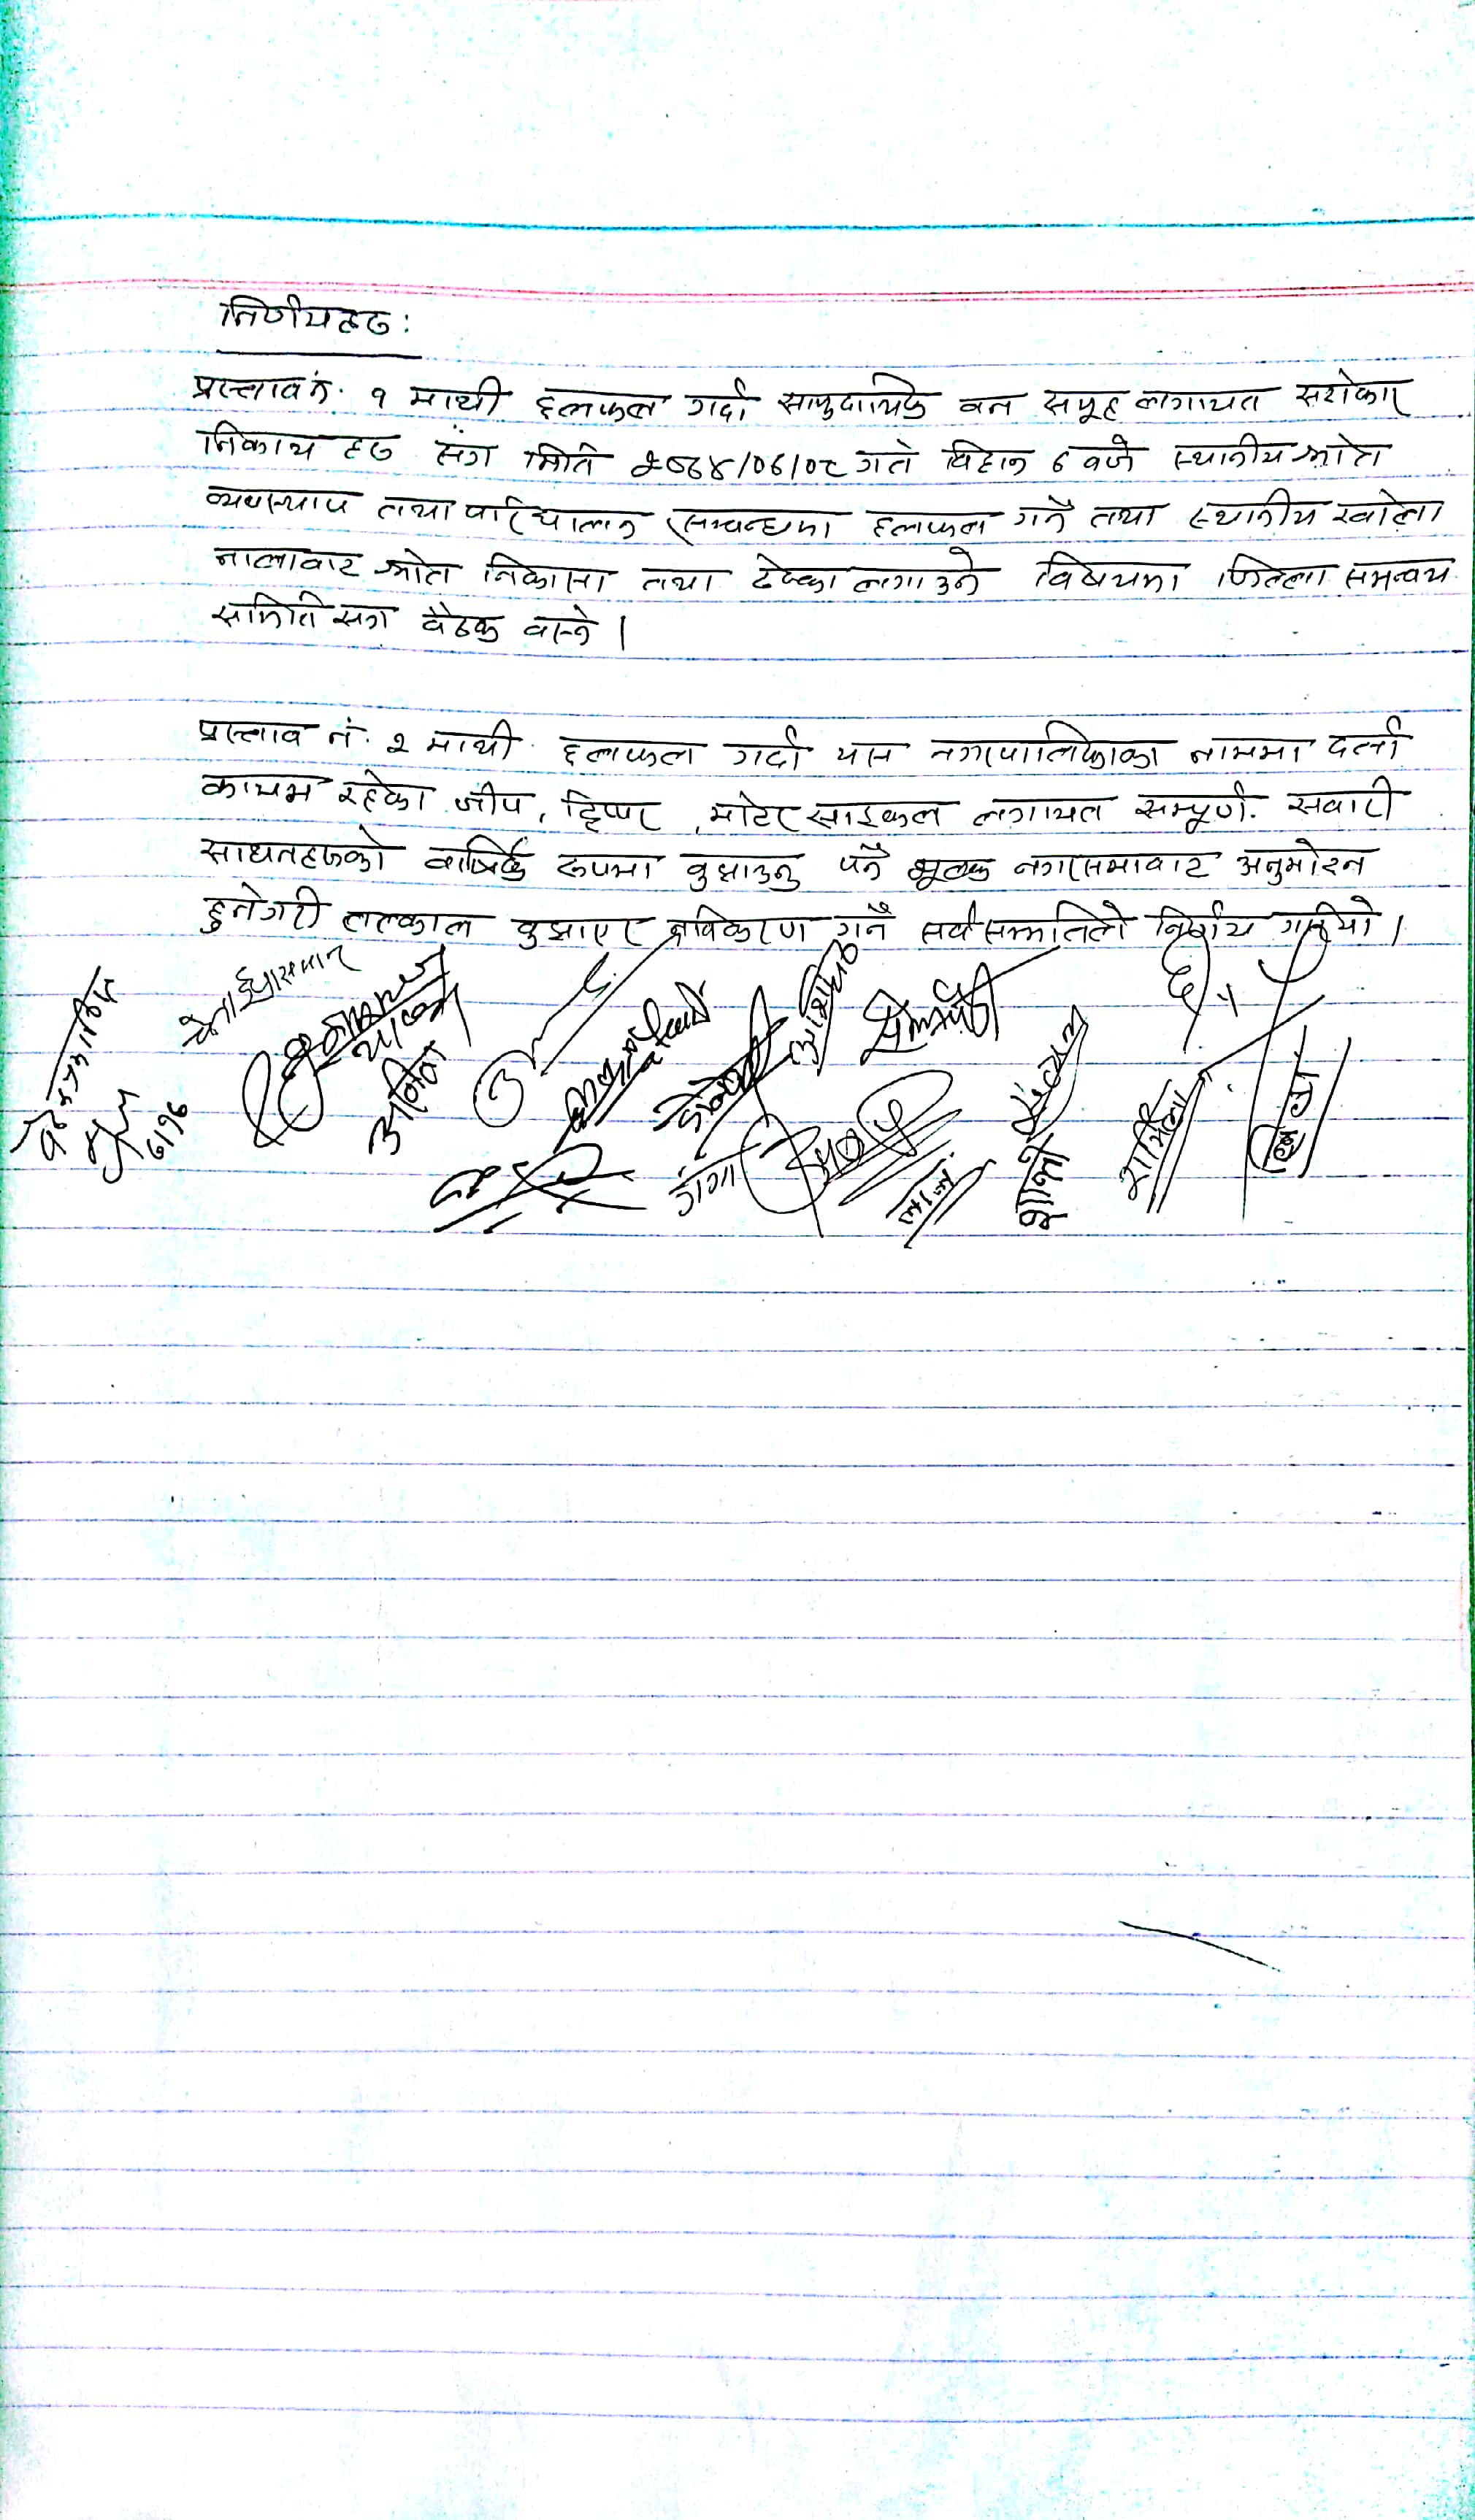 निर्णयहरु:
प्रस्ताव नं. १ माथी छलफल गर्दा सामुदायिक वन समूह लगायत सरोकार
निकाय हरु संग मिति २०७४/०७/०८ गते विहान ७ वजे स्थानीय श्रोत
व्यवस्थाप तथा परिचालन सम्वन्धमा छलफल गर्ने तथा स्थानीय खोला
नालावाट श्रोत निकासा तथा ठेक्का लगाउने विषयमा जिल्ला समन्वय
समिति संग वैठक वस्ने।
प्रस्ताव नं. २ माथी छलफल गर्दा यस नगरपालिकाका नाममा दर्ता
कायम रहेका जीप, ट्रिपर, मोटर साइकल लगायत सम्पूर्ण सवारी
साधनहरुको वार्षिक रुपमा वुझाउनु पर्ने शुल्क नगरसभावाट अनुमोदन
हुनेगरी तत्काल वुझाएर नविकरण गर्ने सर्वसम्मतिले निर्णय गरीयो।
अनिता
गंगा
लाल
शान्ती
शर्मिला